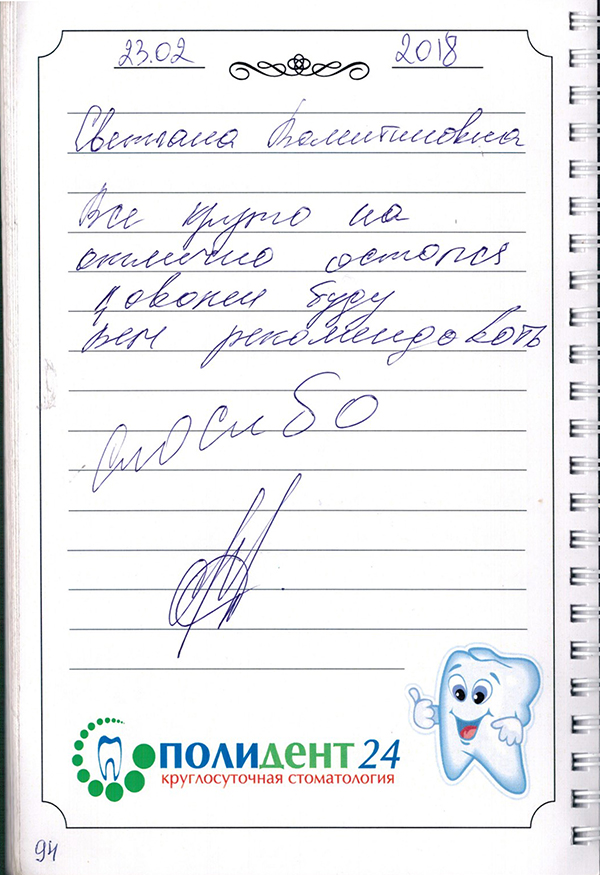 23.02 2018
Светлана Валентиновна
Все круто на
отлично остался
доволен буду
всем рекомендовать
спасибо
ПОЛИДЕНТ 24
круглосуточная стоматология
94